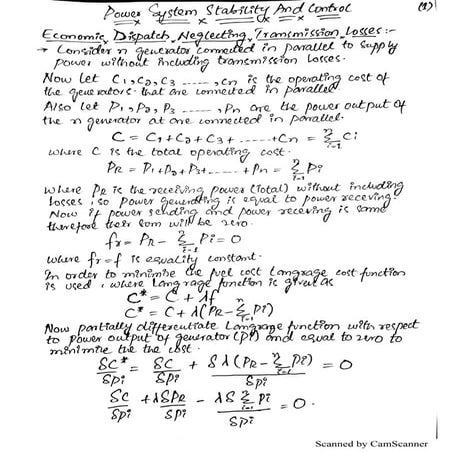 Power System Stability And Control (1)
Economic Dispatch Neglecting Transmission Losses:-
→ Consider n generator connected in parallel to supply
power without including transmission losses.
Now Let C1, C2, C3 ------, Cn is the operating cost of
the generators that are connected in parallel.
Also Let P1, P2, P3 ------, Pn are the power output of
the n generator at are connected in parallel.
C = C1+C2+C3+.....+Cn = n∑i=1 Ci
where C is the total operating cost.
PR = P1+P2+P3+.....+Pn = n∑i=1 Pi
where PR is the receiving power (total) without including
losses, so power generating is equal to power receving.
Now if power sending and power receiving is same
therefore their sum will be zero.
fr = PR - n∑i=1 Pi = 0
where fr=f is equality constant.
In order to minimise the fuel cost Langrage cost function
is used, where Langrage function is given as
C* = C + λf
C* = C + λ(PR - n∑i=1 Pi)
Now partially differentiate Langrage function with respect
to power output of generator (Pi) and equal to zero to
minimise the the cost.
δC*/δPi = δC/δPi + δλ(PR - n∑i=1 Pi)/δPi = 0
δC/δPi + λδPR/δPi - λδ n∑i=1 Pi/δPi = 0.
Scanned by CamScanner